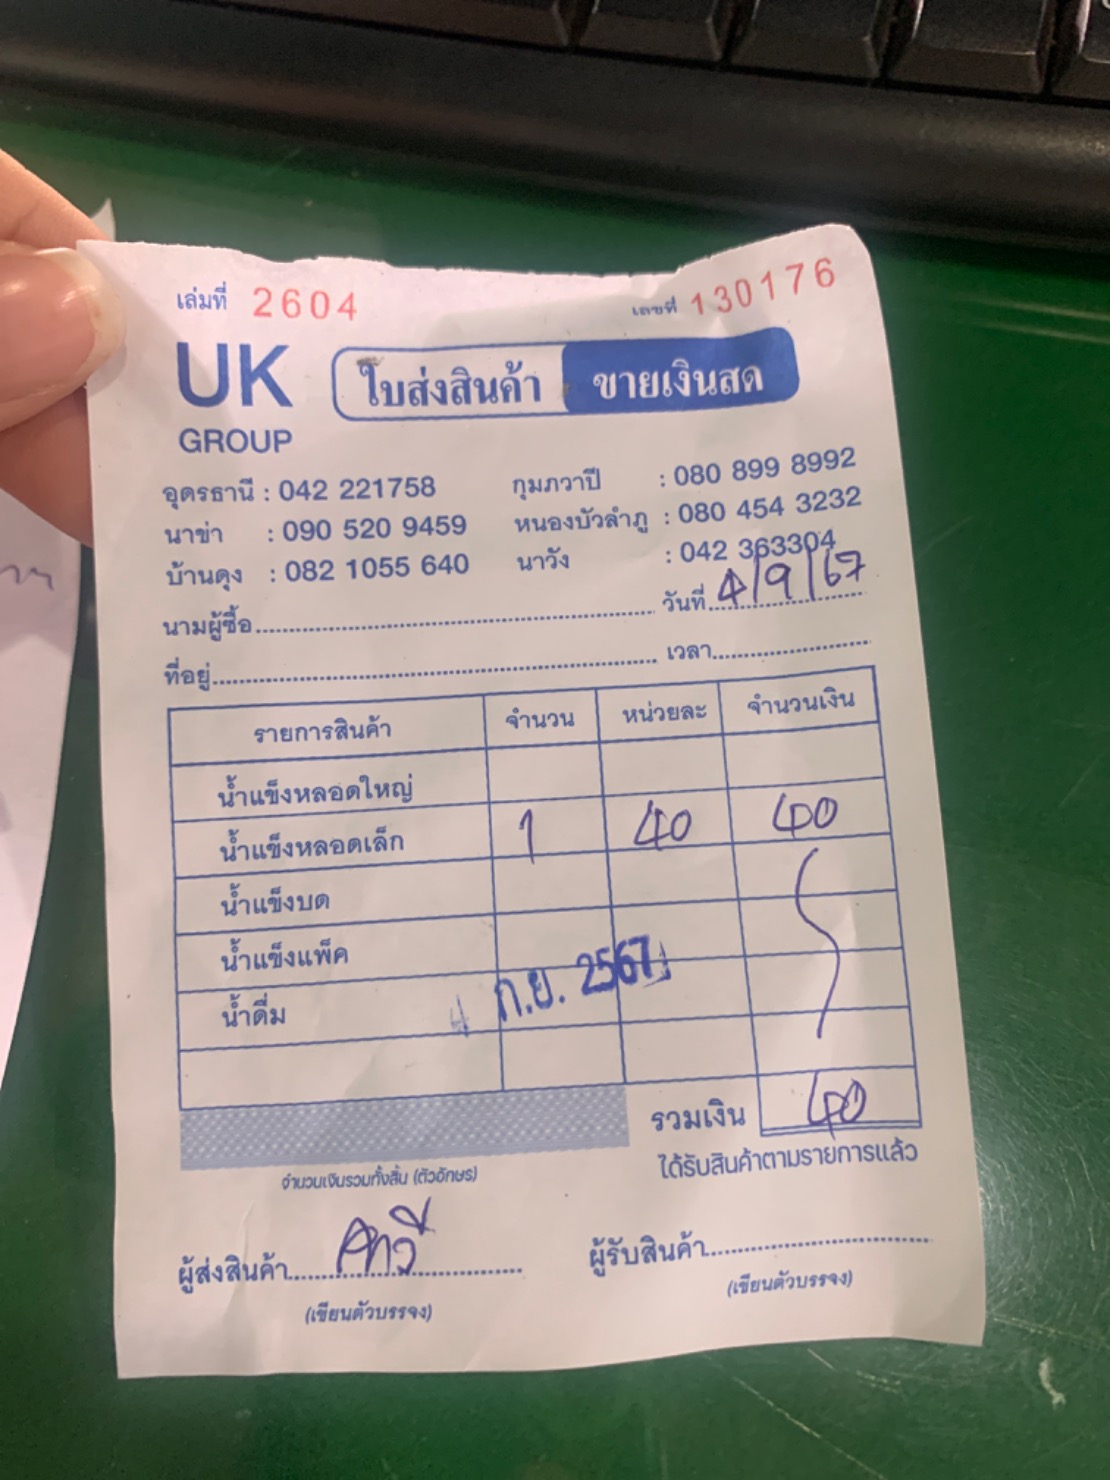 เล่มที่ 2604 เลขที่ 130176
UK GROUP
ใบส่งสินค้า ขายเงินสด
อุดรธานี : 042 221758 กุมภวาปี : 080 899 8992
นาข่า : 090 520 9459 หนองบัวลำภู : 080 454 3232
บ้านดุง : 082 1055 640 นาวัง : 042 363304
นามผู้ซื้อ วันที่ 4/9/67
ที่อยู่ เวลา
รายการสินค้า จำนวน หน่วยละ จำนวนเงิน
น้ำแข็งหลอดใหญ่
น้ำแข็งหลอดเล็ก 1 40 40
น้ำแข็งบด
น้ำแข็งแพ็ค
น้ำดื่ม
4 ก.ย. 2567
รวมเงิน 40
จำนวนเงินรวมทั้งสิ้น (ตัวอักษร) ได้รับสินค้าตามรายการแล้ว
ผู้ส่งสินค้า ผู้รับสินค้า
(เขียนตัวบรรจง) (เขียนตัวบรรจง)